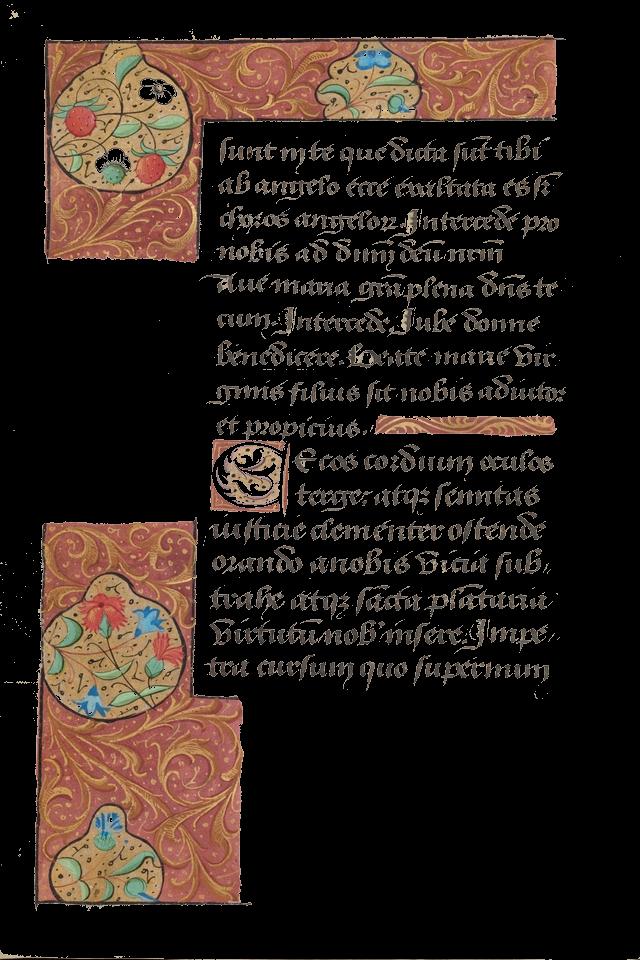 sunt in te que dicta sūt tibi
ab angelo ecce exaltata es sr̄
choros angelorꝝ. Intercede pro
nobis ad dn̄m deū nrm̄
Aue maria grā plena dn̄s te
cum. Intercede. Iube donne
benedicere. Beate marie vir
ginis filius sit nobis adiutor
et propicius.
Cecos cordium oculos
terge: atqꝫ semitas
iusticie clementer ostende
orando a nobis vicia sub,
trahe atqꝫ scā̄ta plātaria
virtutū nob' insere. Impe,
tra cursum quo supermum